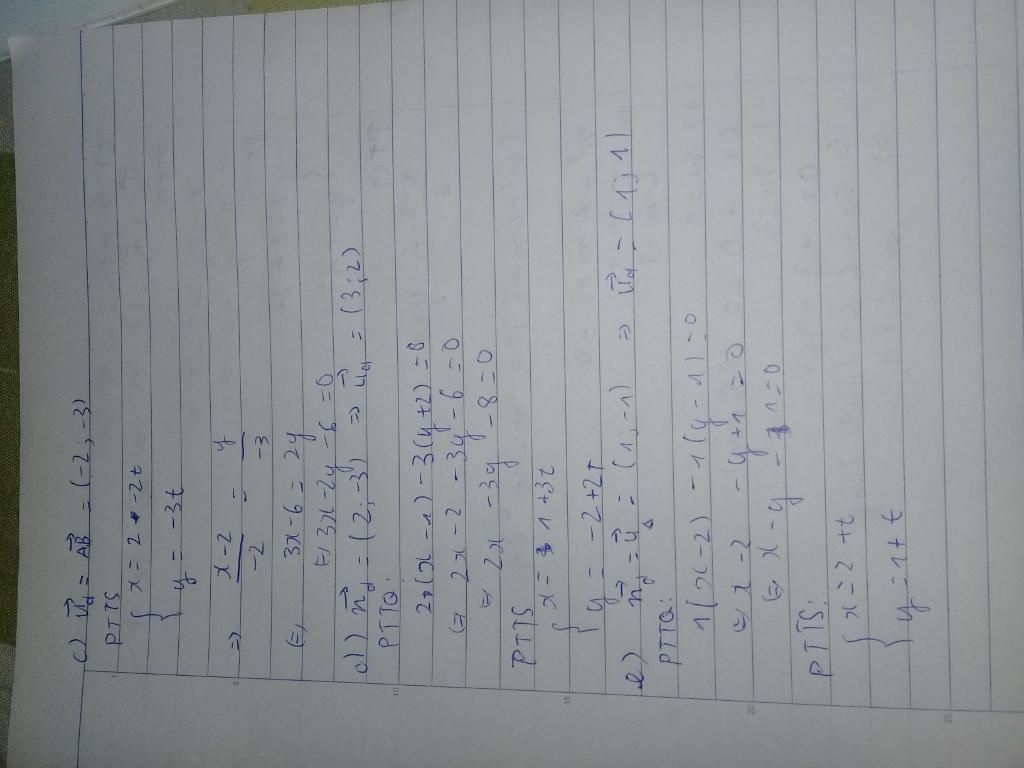 c) u⃗d = AB⃗ = (-2; -3)
PTTS
{ x = 2 - 2t
{ y = -3t
=> x-2/-2 = y/-3
⇔ 3x - 6 = 2y
⇔ 3x - 2y - 6 = 0
d) n⃗d = (2; -3) => u⃗d = (3; 2)
PTTQ:
2(x - 1) - 3(y + 2) = 0
⇔ 2x - 2 - 3y - 6 = 0
⇔ 2x - 3y - 8 = 0
PTTS
{ x = 1 + 3t
{ y = -2 + 2t
e) n⃗d = u⃗Δ = (1; -1) => u⃗d = (1; 1)
PTTQ:
1(x - 2) - 1(y - 1) = 0
⇔ x - 2 - y + 1 = 0
⇔ x - y - 1 = 0
PTTS:
{ x = 2 + t
{ y = 1 + t
1
5
10
15
20
25